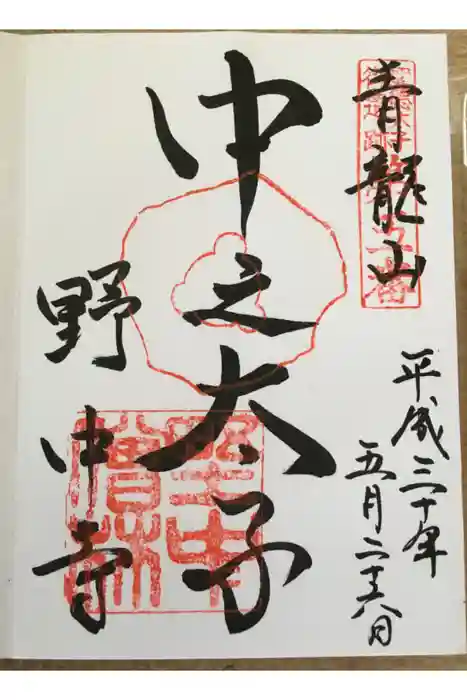 青龍山
平成三十年
五月二十八日
中之太子
野中寺